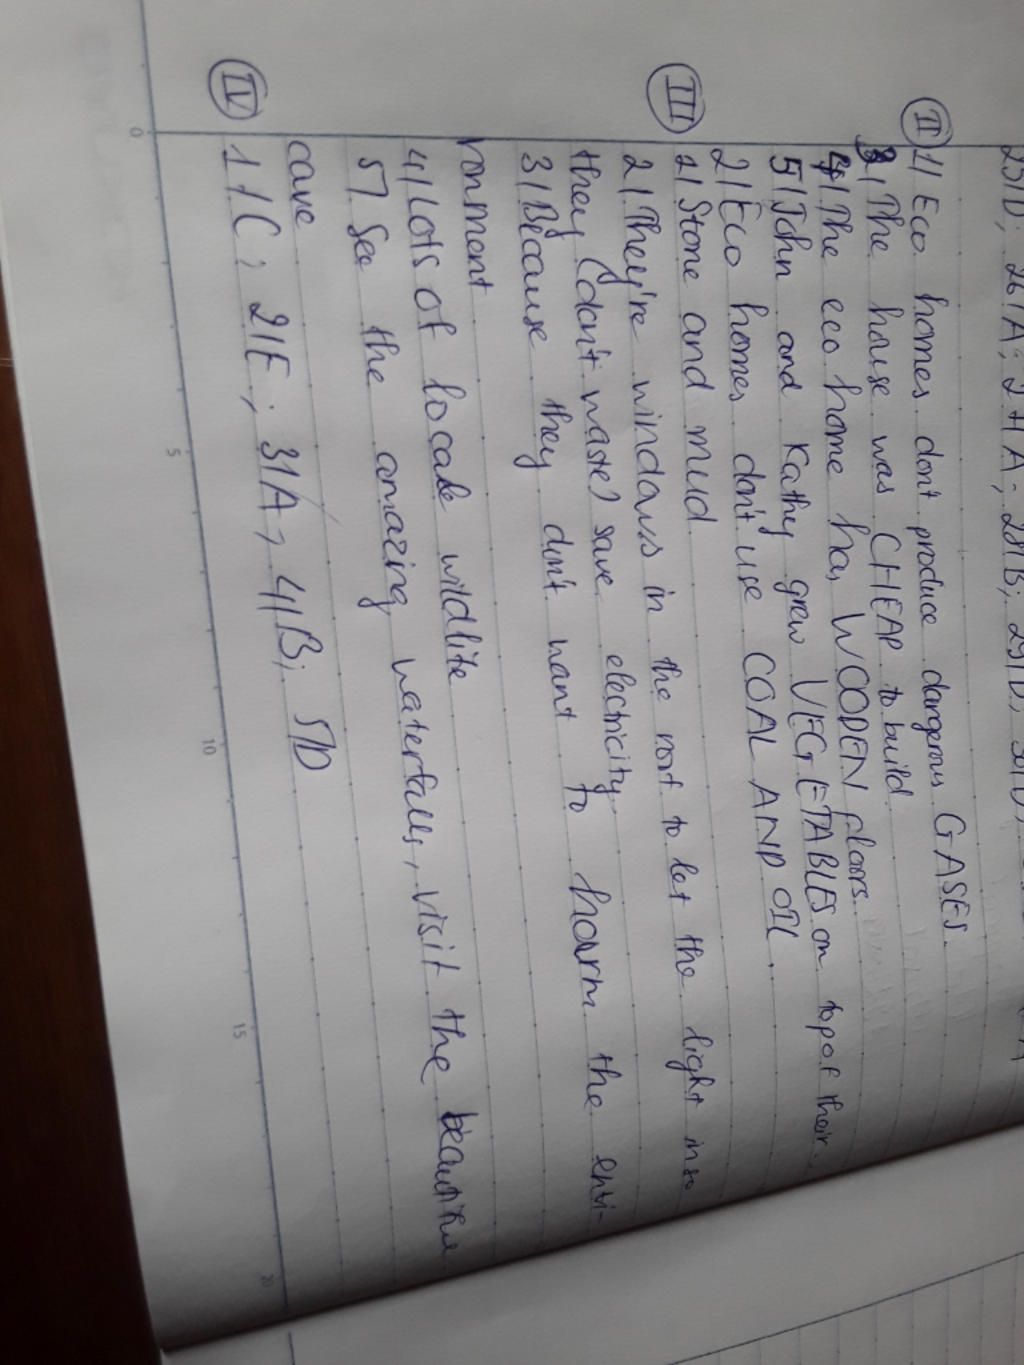 25/D; 26/A; 27/A; 28/B; 29/D; 30/D;
II 1/ Eco homes don't produce dangerous GASES.
3/ The house was CHEAP to build
4/ The eco home has WOODEN floors.
5/ John and Kathy grew VEGETABLES on top of their.
2/ Eco homes don't use COAL AND OIL.
III 1/ Stone and mud
2/ They're windows in the roof to let the light in so
they (don't waste) save electricity
3/ Because they don't want to harm the envi-
ronment
4/ Lots of locale wildlife
5/ See the amazing waterfalls, visit the beautiful
cave
IV 1/C; 2/E; 3/A; 4/B; 5/D
0
5
10
15
20